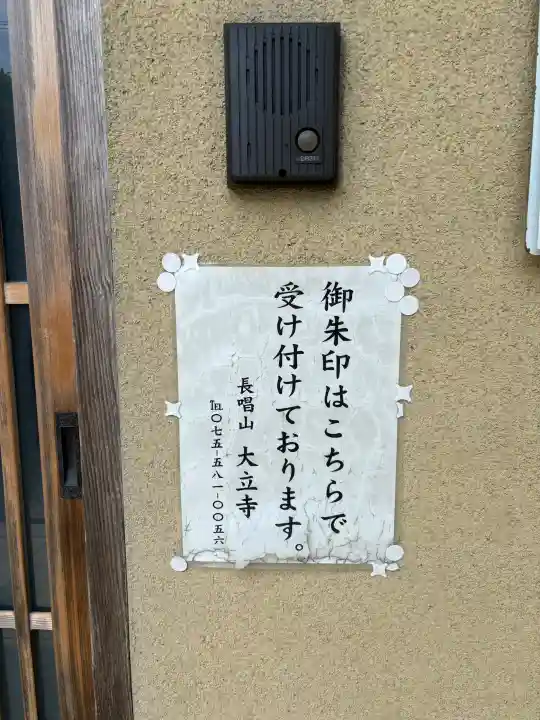 御朱印はこちらで
受け付けております。
長唱山 大立寺
℡〇七五-五八一-〇〇五六